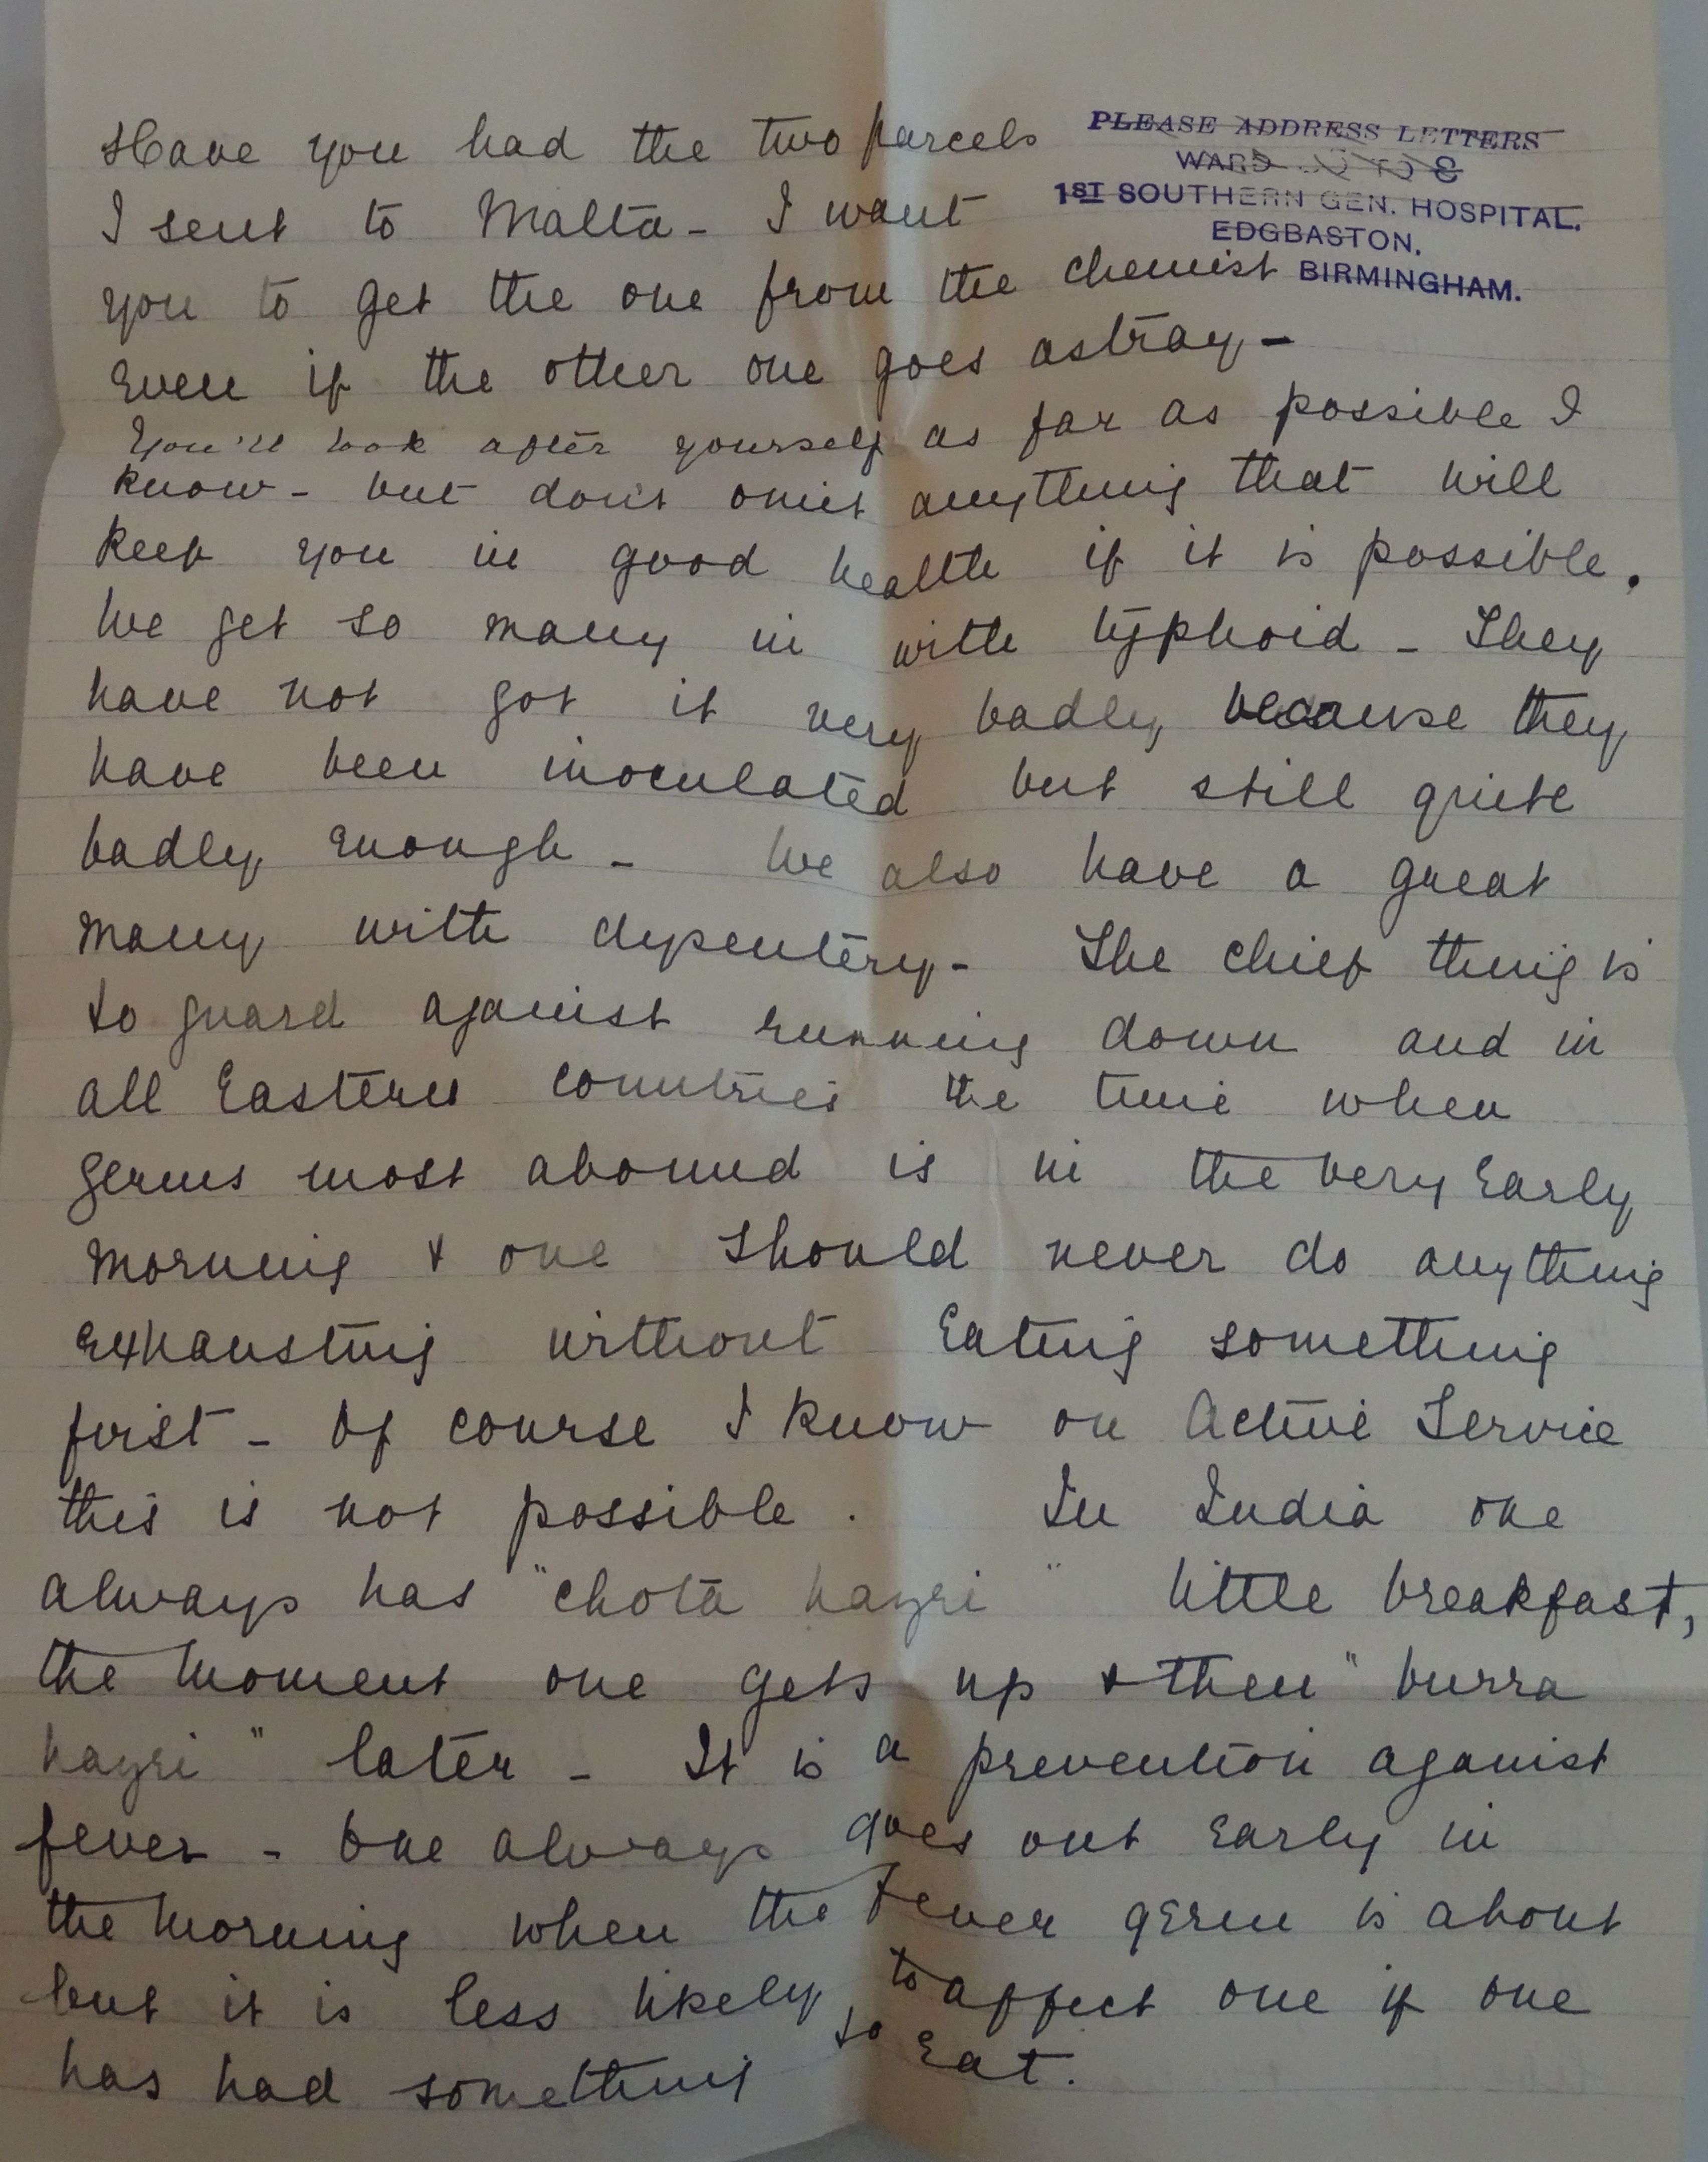 PLEASE ADDRESS LETTERS
WARD TO 8
1ST SOUTHERN GEN. HOSPITAL.
EDGBASTON.
BIRMINGHAM.
Have you had the two parcels
I sent to Malta - I want
you to get the one from the chemist
even if the other one goes astray -
You'll look after yourself as far as possible I
know - but don't omit anything that will
keep you in good health if it is possible.
We get so many in with typhoid - They
have not got it very badly, because they
have been inoculated but still quite
badly enough - We also have a great
many with dysentery - The chief thing is
to guard against running down and in
all Eastern countries the time when
germs most abound is in the very early
morning & one should never do anything
exhausting without eating something
first - Of course I know on Active Service
this is not possible. In India one
always has "chota hazri" little breakfast,
the moment one gets up & then "burra
hazri" later - It is a prevention against
fever - One always goes out early in
the morning when the fever germ is about
but it is less likely to affect one if one
has had something to eat.